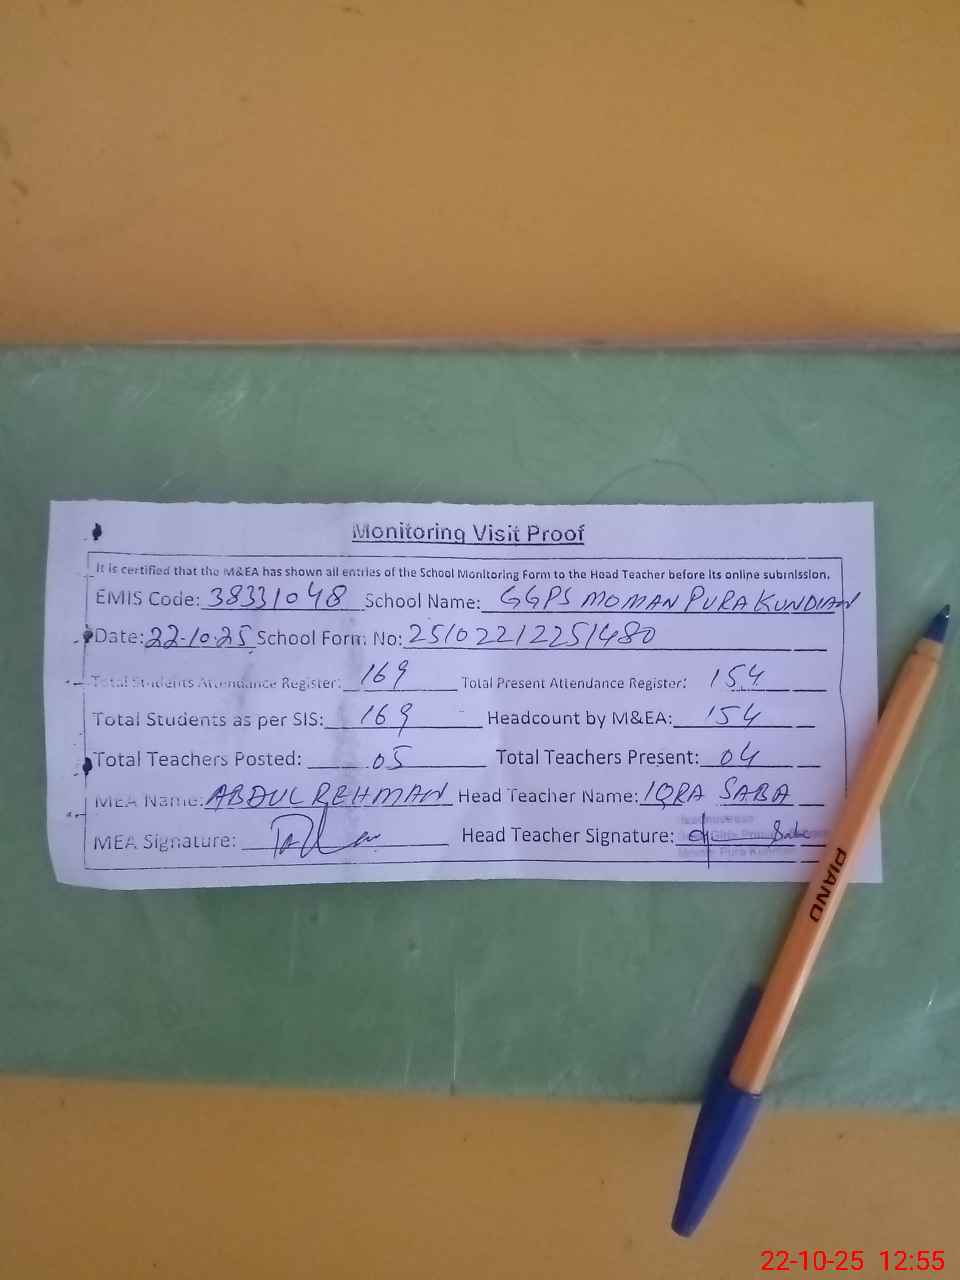 Monitoring Visit Proof
It is certified that the M&EA has shown all entries of the School Monitoring Form to the Head Teacher before its online submission.
EMIS Code: 38331048 School Name: GGPS MOMAN PURA KUNDIAN
Date: 22-10-25 School Form No: 25102212251480
Total Students Attendance Register: 169 Total Present Attendance Register: 154
Total Students as per SIS: 169 Headcount by M&EA: 154
Total Teachers Posted: 05 Total Teachers Present: 04
MEA Name: ABDUL REHMAN Head Teacher Name: IQRA SABA
MEA Signature: Head Teacher Signature: Saba
Pura Kundian
PIANO
22-10-25 12:55